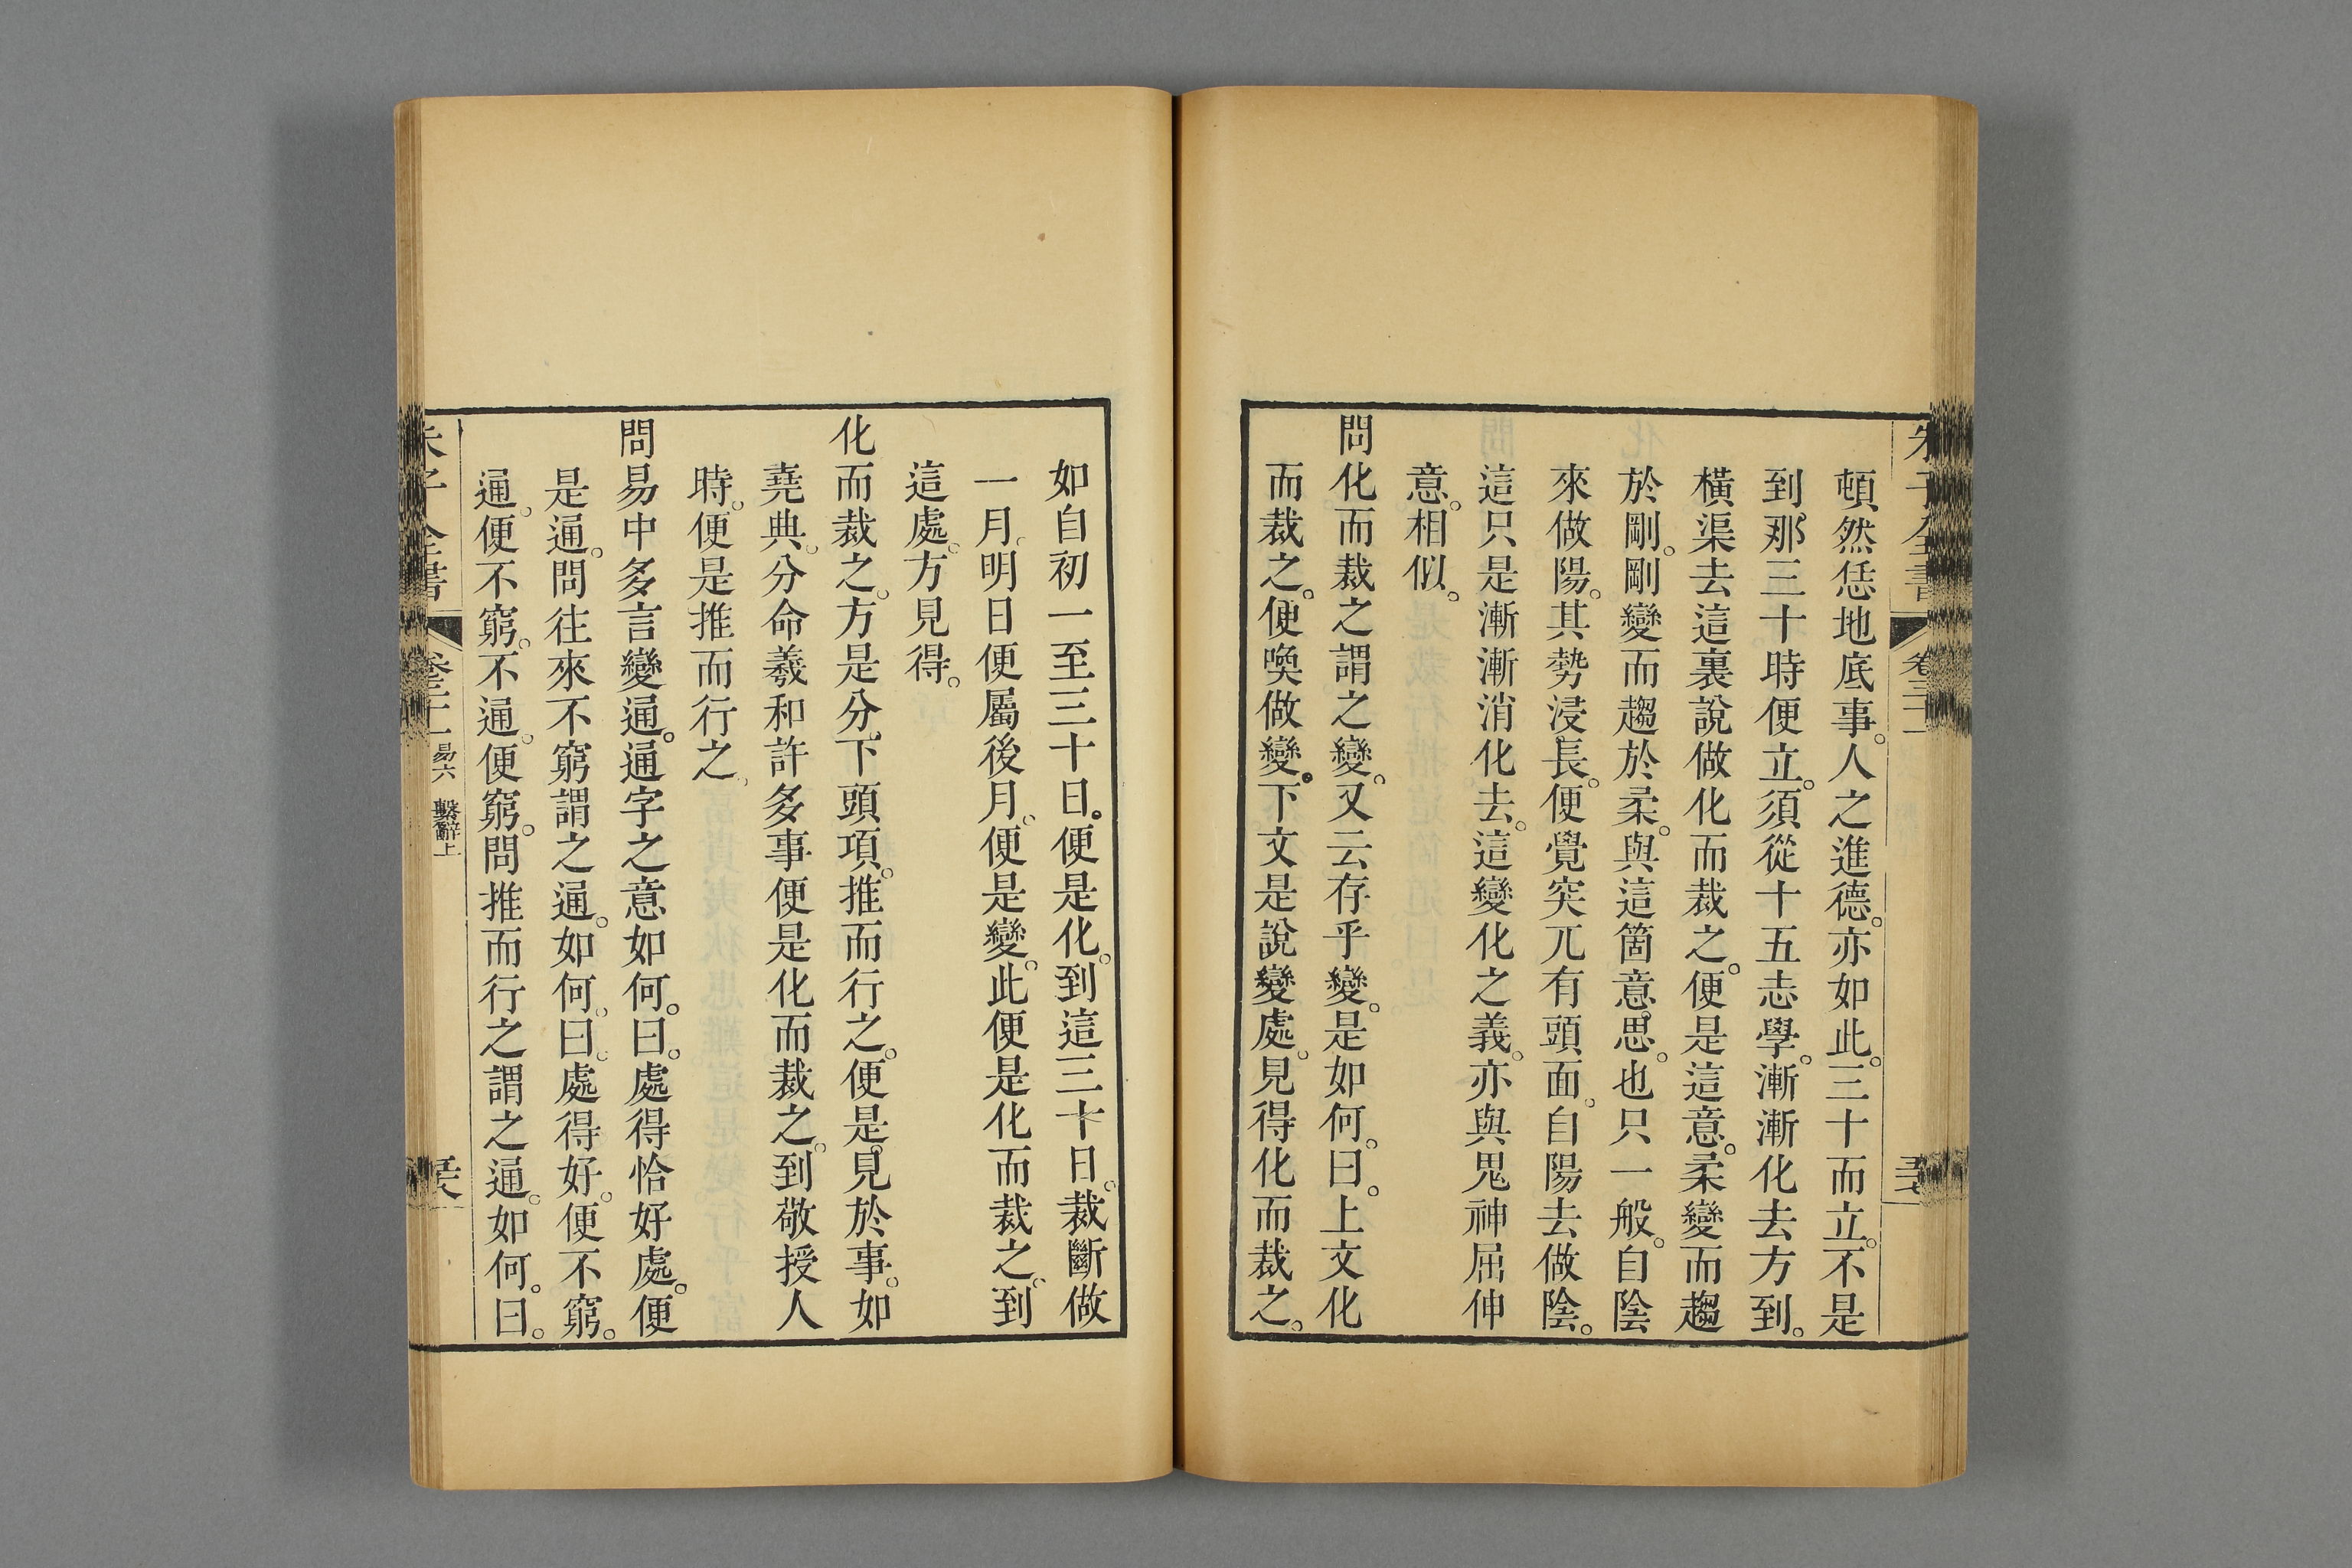 頓然恁地底事。人之進德。亦如此。三十而立。不是
到那三十時便立。須從十五志學。漸漸化去方到。
橫渠去這裏說做化而裁之。便是這意。柔變而趨
於剛。剛變而趨於柔。與這箇意思。也只一般。自陰
來做陽。其勢浸長。便覺突兀有頭面。自陽去做陰。
這只是漸漸消化去。這變化之義。亦與鬼神屈伸
意。相似。
問化而裁之謂之變。又云存乎變。是如何。曰。上文化
而裁之。便喚做變。下文是說變處。見得化而裁之。
如自初一至三十日。便是化。到這三十日。裁斷做
一月。明日便屬後月。便是變。此便是化而裁之。到
這處。方見得。
化而裁之。方是分。下頭項。推而行之。便是見於事。如
堯典。分命羲和許多事便是化而裁之。到敬授人
時。便是推而行之。
問易中多言變通。通字之意如何。曰。處得恰好處。便
是通。問往來不窮謂之通。如何。曰。處得好。便不窮。
通。便不窮。不通。便窮。問推而行之謂之通。如何。曰。
朱子全書
易六 繫辭上